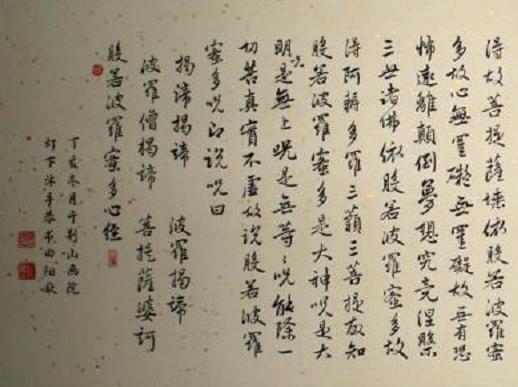 得故菩提薩埵依般若波羅蜜
多故心無罣礙无罣礙故無有恐
怖遠離顛倒夢想究竟涅槃
三世諸佛依般若波羅蜜多故
得阿耨多羅三藐三菩提故知
般若波羅蜜多是大神呪是大
明呪是無上呪是無等々呪能除一
切苦真實不虛故說般若波羅
蜜多呪即說呪曰
揭諦揭諦 波羅揭諦
波羅僧揭諦 菩提薩婆訶
般若波羅蜜多心經
丁亥冬月于荆山画院
灯下沐手恭书